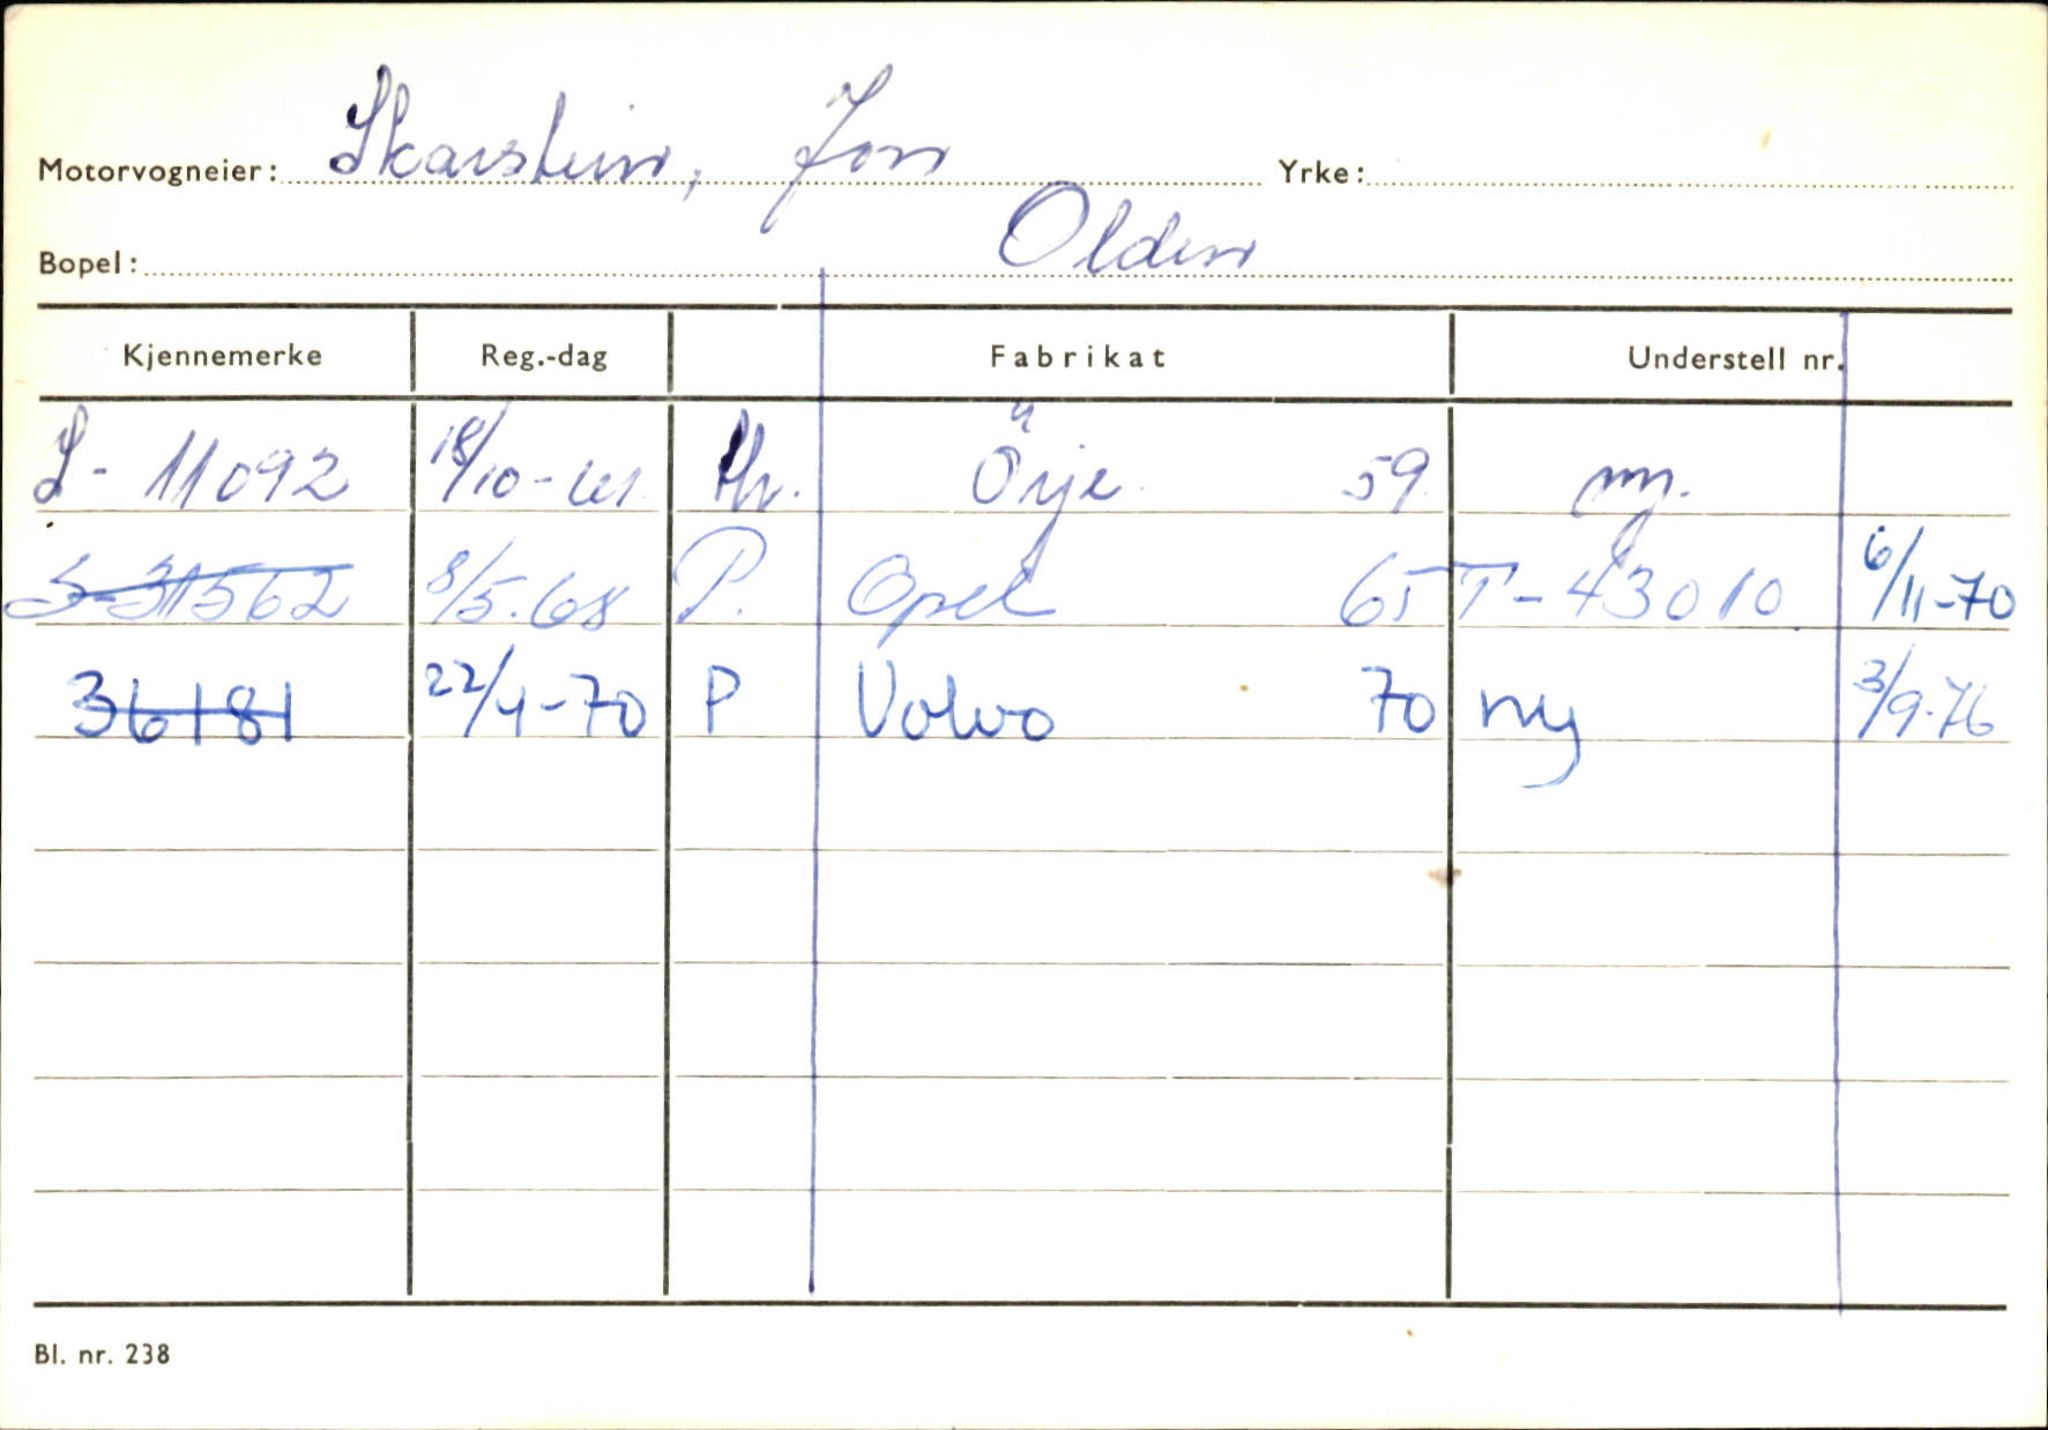 Motorvogneier: Skarstein, Jon Yrke:
Bopel: Olden
Kjennemerke Reg.-dag Fabrikat Understell nr.
S- 11092 18/10-61 Örje 59 ny.
S-31562 8/5.68 P. Opel 65 T-43010 6/11-70
36181 22/4-70 P Volvo 70 ny 3/9-76
Bl. nr. 238